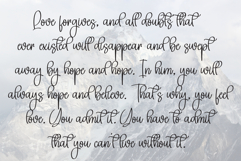 Love forgives, and all doubts that
ever existed will disappear and be swept
away by hope and hope. In him, you will
always hope and believe. That's why, you feel
love. You admit it. You have to admit
that you can't live without it.